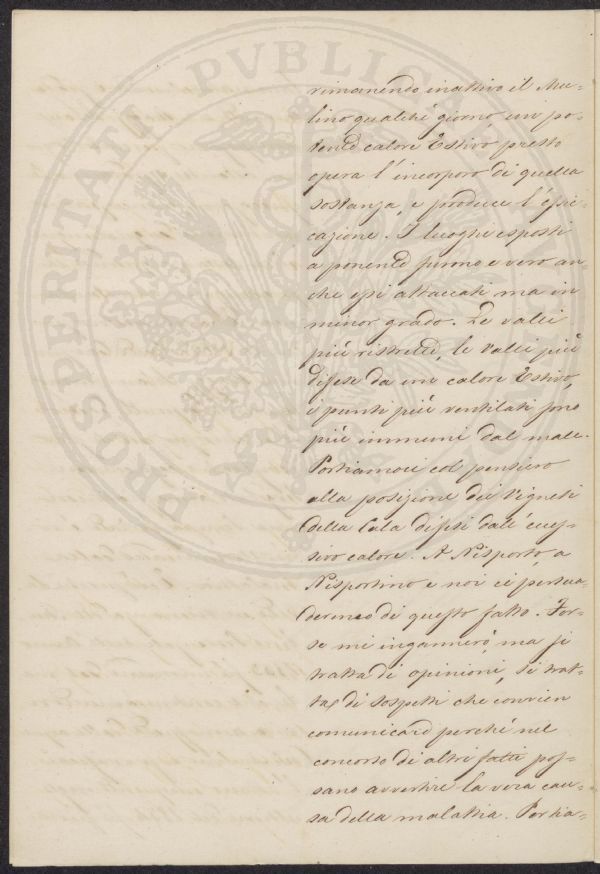 rimanendo inattivo il Mu-
lino qualche giorno un po-
tente calore Estivo presto
opera l'incorporo di quella
sostanza, e produce l'essic-
cazione. I luoghi esposti
a ponente furono e vero an-
che essi attaccati ma in
minor grado. Le valli
più ristrette, le Valli più
difese da un calore Estivo,
i punti più ventilati sono
più immuni dal male.
Portiamoci col pensiero
alla posizione dei Vigneti
della Cala difesi dall'ecces-
sivo calore. A Nisporto, a
Nisportino e noi ci persua-
deremo di questo fatto. For-
se mi ingannerò, ma si
tratta di opinioni, si trat-
ta di sospetti che convien
comunicare perché nel
concorso di altri fatti pos-
sano avvertire la vera cau-
sa della malattia. Portia-
PROSPERITATI PVBLICAE